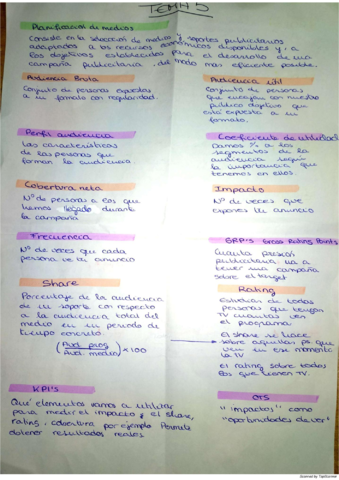 TEMA 5
Planificación de medios
Consiste en la selección de medios y soportes publicitarios
adaptados a los recursos económicos disponibles y, a
los objetivos establecidos para el desarrollo de una
campaña publicitaria, del modo más eficiente posible.
Audiencia Bruta
Conjunto de personas expuestas
a un formato con regularidad.
Perfil audiencia
Las características
de las personas que
forman la audiencia
Cobertura neta
Nº de personas a los que
hemos llegado durante
la campaña
Frecuencia
Nº de veces que cada
persona ve tu anuncio
Share
Porcentaje de la audiencia
de un soporte con respecto
a la audiencia total del
medio en un periodo de
tiempo concreto.
(Aud. prog / Aud. medio) x 100
KPI's
Qué elementos vamos a utilizar
para medir el impacto y el share,
rating, cobertura por ejemplo. Permite
obtener resultados reales
Audiencia útil
Conjunto de personas
que encajan con nuestro
público objetivo que
está expuesto a un
formato.
Coeficiente de utilización
Damos % a los
segmentos de la
audiencia según
la importancia que
tenemos en ellos
Impacto
Nº de veces que
expones tu anuncio
GRP'S Gross Rating Points
Cuanta presión
publicitaria va a
tener una campaña
sobre el target
Rating
Estudias de todas
personas que tengan
TV cuantas ven
el programa
el share se hace
sobre aquellas ps que
ven en ese momento
la TV
el rating sobre todos
los que tienen TV.
OTS
"impactos" como
"oportunidades de ver"
Scanned by TapScanner